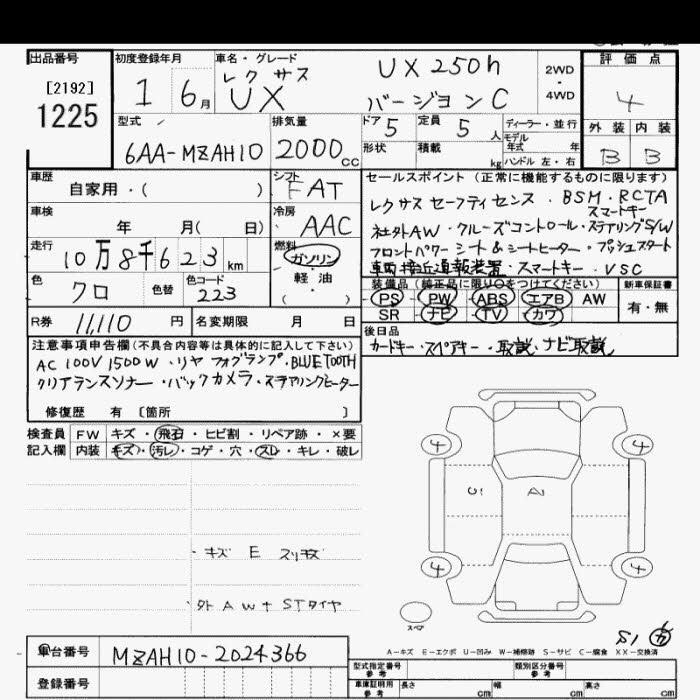 出品番号
[2192]
1225
初度登録年月
1 6月
車名・グレード
レクサス
UX
UX 250h
バージョンC
2WD
・
4WD
評価点
4
外装 内装
B B
型式
6AA-MZAH10
排気量
2000cc
ドア 5
定員 5人
形状
積載 kg
ディーラー・並行
モデル年式 年
ハンドル 左・右
車歴
自家用・( )
シフト
FAT
車検
年 月( 日)
冷房
AAC
走行
10万8千623km
燃料
ガソリン
・
軽油
( )
色
クロ
色替
色コード
223
セールスポイント(正常に機能するものに限ります)
レクサスセーフティセンス・BSM・RCTA
スマートキー
社外AW・クルーズコントロール・ステアリングS/W
フロントパワーシート&シートヒーター・プッシュスタート
車両接近通報装置・スマートキー・VSC
装備品(純正品に限り○をつけてください)
PS PW ABS エアB AW
SR ナビ TV カワ
新車保証書
有・無
R券 11,110 円
名変期限 月 日
後日品
カードキー・スペアキー・取説・ナビ取説
注意事項申告欄(不具合内容等は具体的に記入して下さい)
AC100V 1500W・リヤフォグランプ・BLUETOOTH
クリアランスソナー・バックカメラ・ステアリングヒーター
修復歴 有 〔箇所 〕
検査員 FW キズ・飛石・ヒビ割・リペア跡・×要
記入欄 内装 キズ・汚レ・コゲ・穴・スレ・キレ・破レ
4 4
U1 A1
・キズ E スリキズ
4 4
・外AW+STタイヤ
スペア
S1 カ
A−キズ E−エクボ U−凹み W−補修跡 S−サビ C−腐食 XX−交換済
車台番号 MZAH10-2024366
登録番号
型式指定番号 参考
類別区分番号 参考
車庫証明用 参考 長さ cm 幅 cm 高さ cm